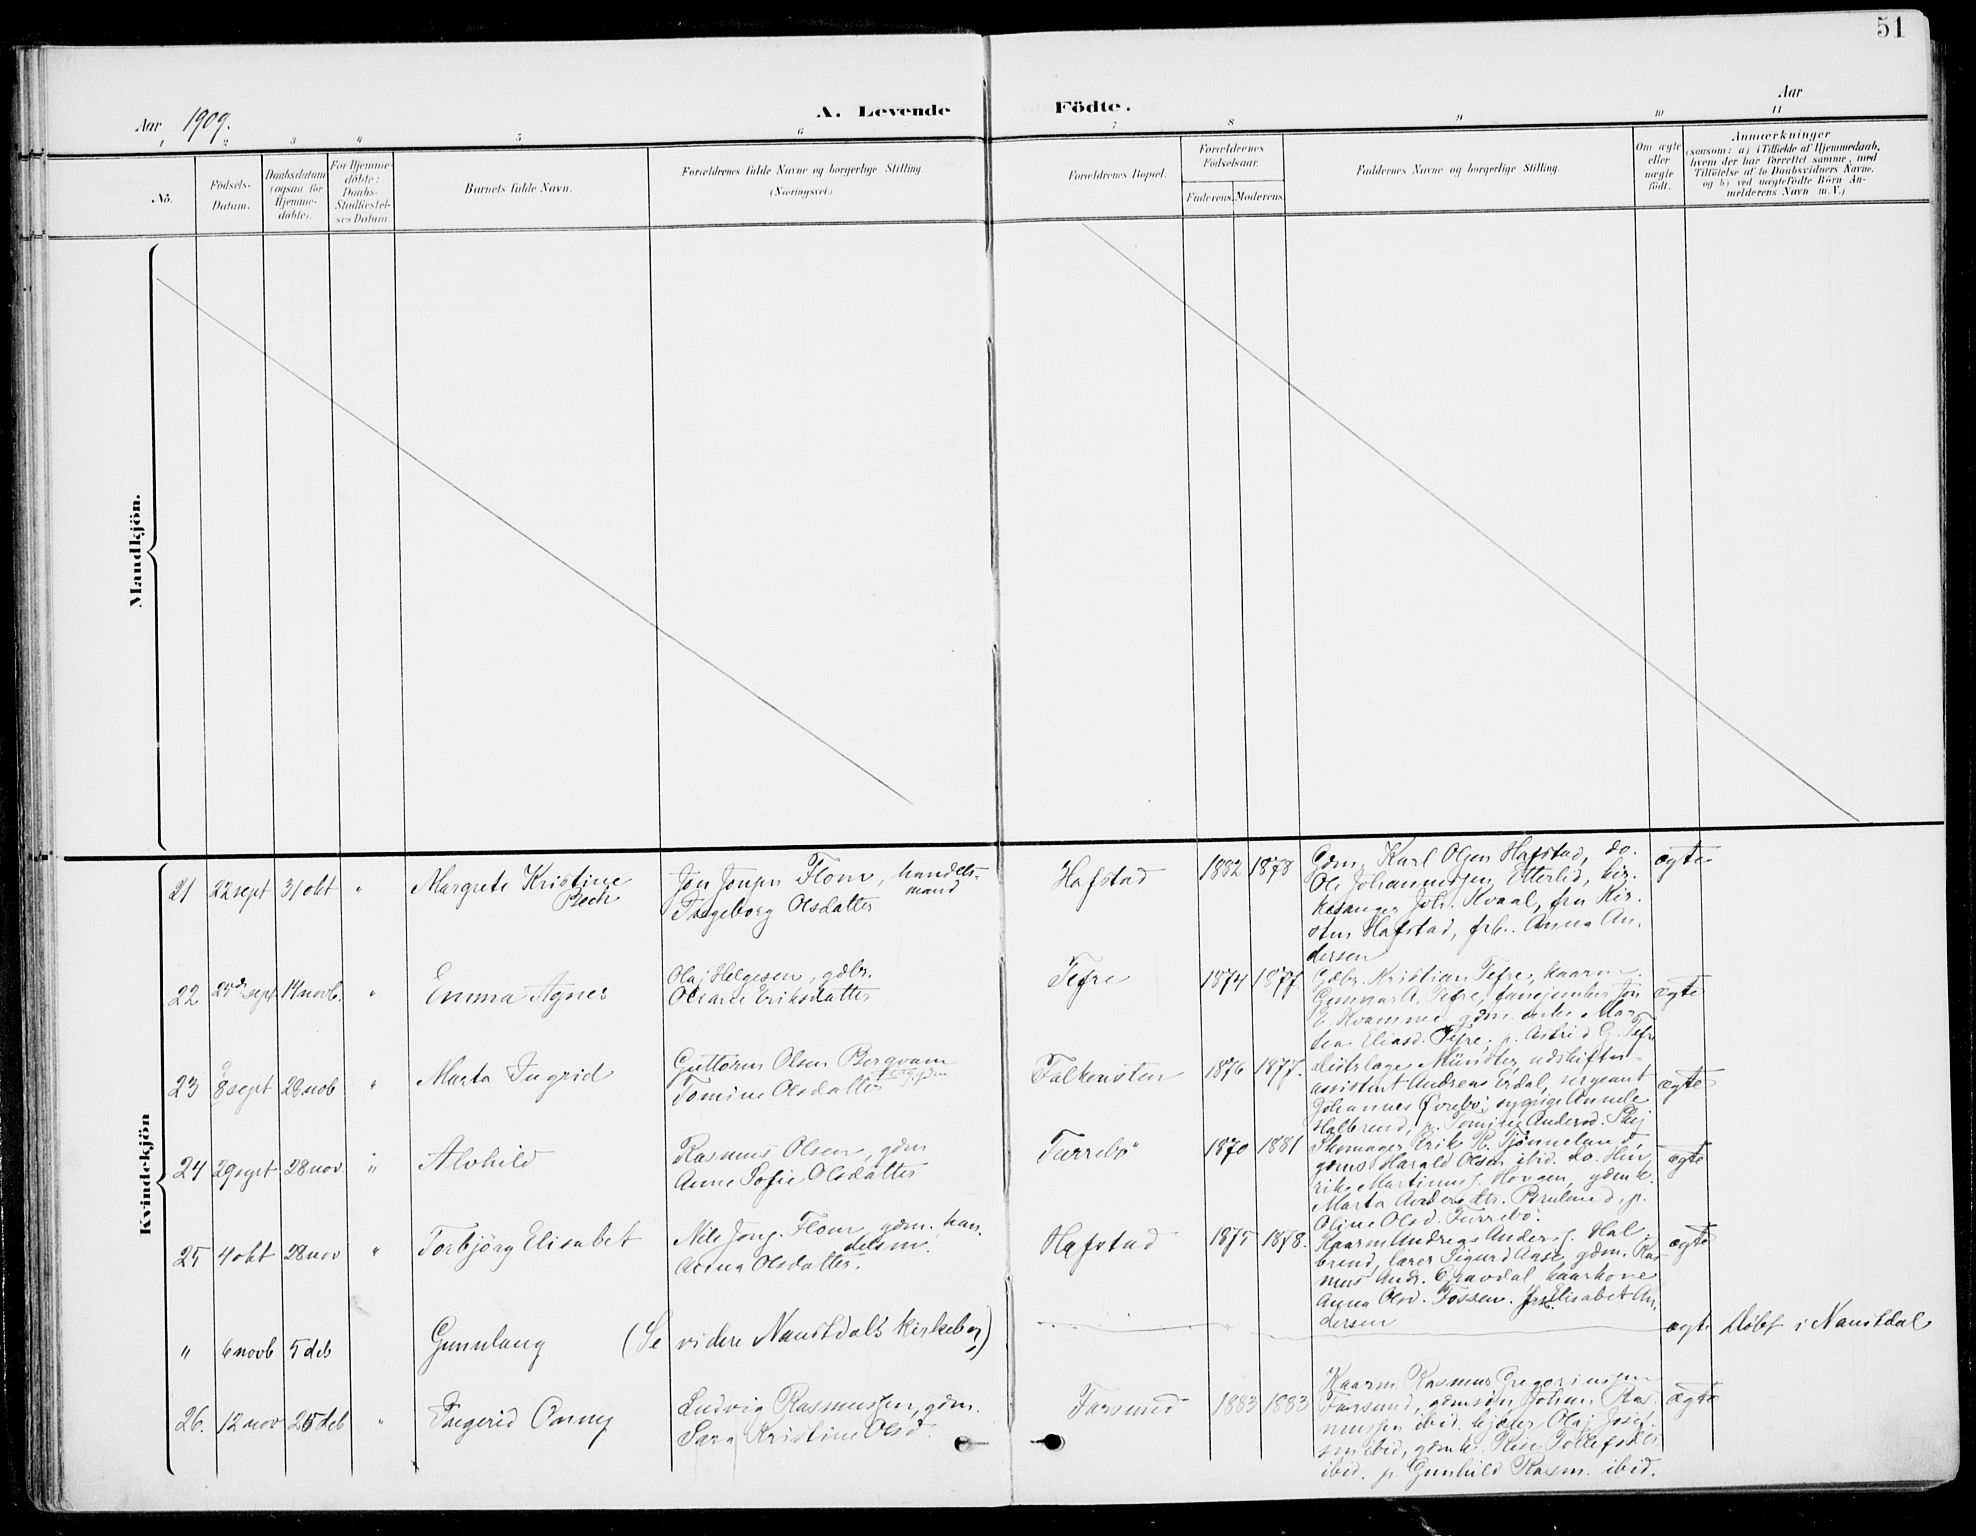 51
Aar 1909.
A. Levende
Födte.
Aar
1
2
3
4
5
6
7
8
9
10
11
No.
Födsels-
Datum.
Daabsdatum
(ogsaa for
Hjemme-
döbte).
For Hjemme-
döbte:
Daabs-
Stadfæstel-
ses Datum.
Barnets fulde Navn.
Forældrenes fulde Navne og borgerlige Stilling
(Næringsvei.)
Forældrenes Bopæl.
Forældrenes
Födselsaar.
Faderens.
Moderens.
Faddernes Navne og borgerlige Stilling.
Om ægte
eller
uægte
födt.
Anmærkninger
(saasom: a) i Tilfælde af Hjemmedaab,
hvem der har forrettet samme, med
Tilföielse af to Daabsvidners Navne,
og b) ved uægtefödte Börn An-
melderens Navn m. V.)
Mandkjön.
Kvindekjön
21 22 sept 31 okt " Margrete Kristine
Bech
Jon Jonsen Flom, handels-
mand
Ingeborg Olsdatter
Hafstad 1882 1878
Gdm. Karl Olsen Hafstad, do.
Ole Johannessen Etterlid, kir-
kesanger Joh. Kvaal, fru Kir-
sten Hafstad, frk. Anna An-
dersen
ægte
22 sept 14 novb. " Emma Agnes
Olaj Helgesen, gdbr.
Oliane Eriksdatter
Tefre 1874 1877
Gdbr. Kristian Tefre, kaarm.
Gunnar A. Tefre, fanejunker Jon
E. Kvamme, gdm. enke Mar-
tea Eliasd. Tefre, p. Astrid G. Tefre
ægte
23 8 sept 29 nob " Marta Ingrid
Guttorm Olsen Bergvam
Tomine Olsdatter
Falkensten 1876 1877.
distrlæge Münster, udskiftn-
assistent Andreas Erdal, sergeant
Johannes Øvrebø, Annele
Halbrend, p. Tomine Andersd. Skej
ægte
24 29 sept 28 nov " Alvhild
Rasmus Olsen, gdm
Anne Sofie Olsdatter
Furrebø 1870 1881
Skomager Erik R. Tjønneland
gdms. Harald Olsen ibid. do. Hen-
rik Martinus s. Hovgen, gdmk.
Marta Andersdtr. Bruland, p.
Oline Olsd. Furrebø.
ægte
25 4 okt 28 nov " Torbjörg Elisabet
Nils Jons. Flom, gdm. han-
delsm.
Anna Olsdatter.
Hafstad 1875 1878.
Kaarm Andreas Anders s. Hal-
brend, lærer Sigurd Aase, gdm. Ras-
mus Andr. Gravdal, kaarkone
Anna Olsd. Fossen. frk. Elisabet An-
dersen
ægte
" 6 novb 5 deb Gunnlaug (Se videre Naustdals kirkebog)
ægte Døbt i Naustdal
26. 12 nov 26 deb " Ingerid Conny
Ludvig Rasmussen, gdm.
Sara Kristine Olsd.
Farsund 1883 1883
Kaarm. Rasmus Gregoriussen
Farsund, gdmsøn Johan Ras-
mussen ibid. Olaj Josef-
sen ibid, gdmk. Rise Tollefsdtr
ibid. p. Gunhild Rasm. ibid.
ægte